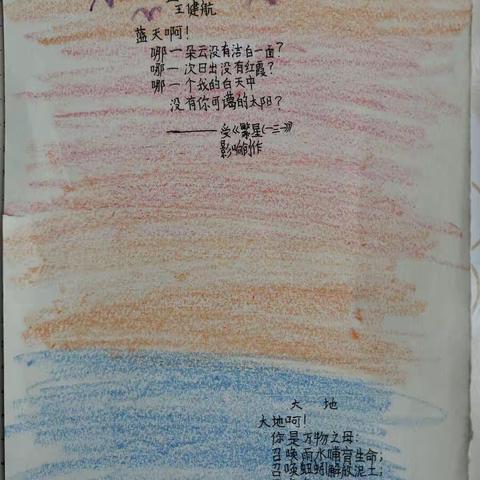 王健航
蓝天啊！
哪一朵云没有洁白一面？
哪一次日出没有红霞？
哪一个我的白天中
没有你可谒的太阳？
——受《繁星(一三一)》
影响创作
大地
大地呵！
你是万物之母：
召唤雨水哺育生命；
召唤蚯蚓解放泥土；